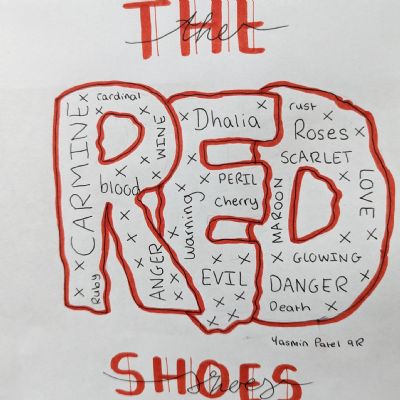 THE
the
RED
CARMINE
cardinal
WINE
blood
Ruby
ANGER
Dhalia
Warning
PERIL
cherry
EVIL
rust
Roses
SCARLET
MAROON
LOVE
GLOWING
DANGER
Death
Yasmin Patel 9R
SHOES
shoes